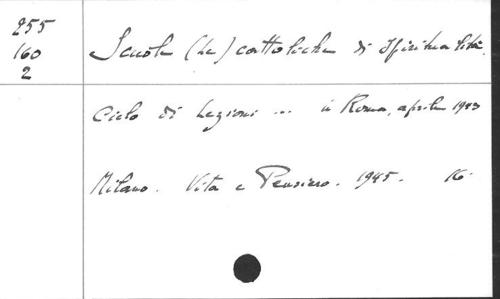 255
160
2
Scuole (Le) cattoliche di spiritualità.
Ciclo di Lezioni ... in Roma, aprile 1943
Milano. Vita e Pensiero. 1945. 16